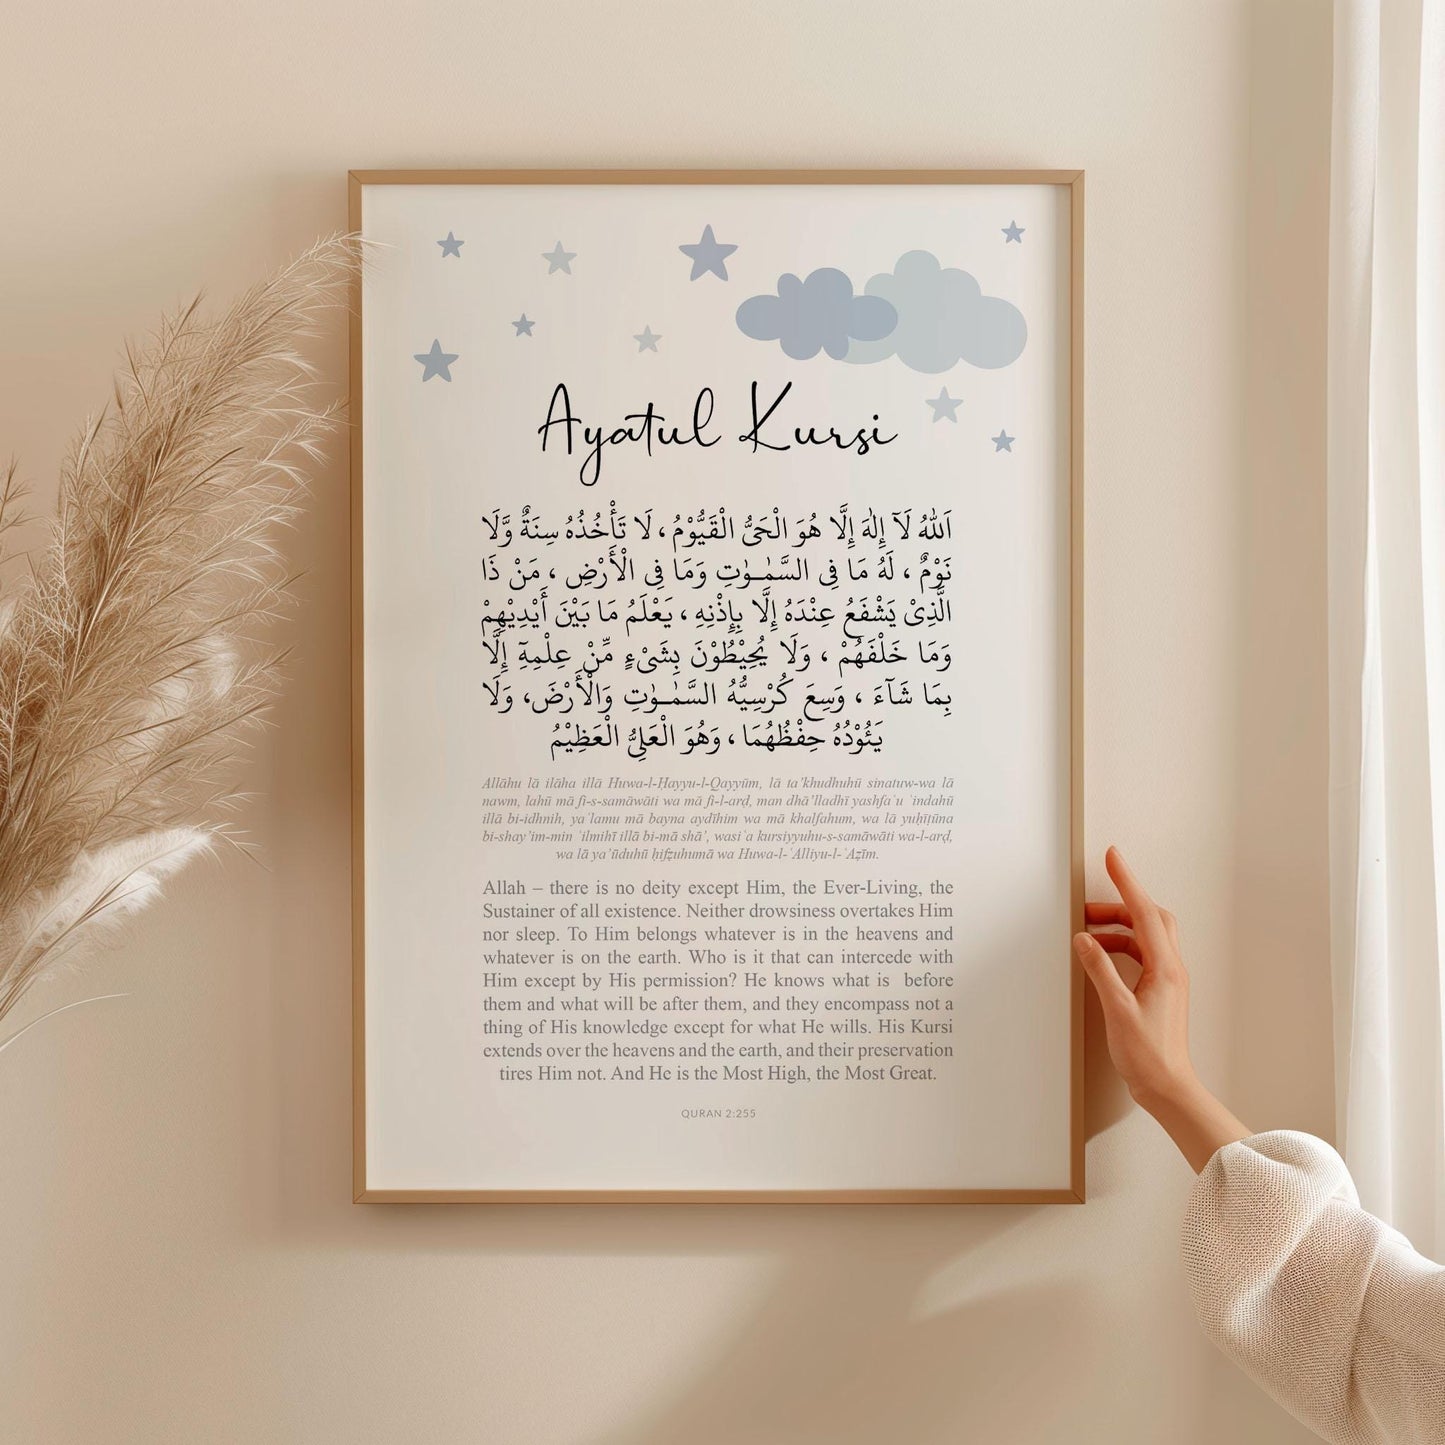 Ayatul Kursi
اَللّٰهُ لَآ إِلٰهَ إِلَّا هُوَ الْحَىُّ الْقَيُّوْمُ ، لَا تَأْخُذُهُ سِنَةٌ وَّلَا
نَوْمٌ ، لَهُ مَا فِى السَّمٰـوٰتِ وَمَا فِى الْأَرْضِ ، مَنْ ذَا
الَّذِىْ يَشْفَعُ عِنْدَهُ إِلَّا بِإِذْنِهِ ، يَعْلَمُ مَا بَيْنَ أَيْدِيْهِمْ
وَمَا خَلْفَهُمْ ، وَلَا يُحِيْطُوْنَ بِشَىْءٍ مِّنْ عِلْمِهِٓ إِلَّا
بِمَا شَآءَ ، وَسِعَ كُرْسِيُّهُ السَّمٰـوٰتِ وَالْأَرْضَ، وَلَا
يَئُوْدُهُ حِفْظُهُمَا ، وَهُوَ الْعَلِىُّ الْعَظِيْمُ
Allāhu lā ilāha illā Huwa-l-Ḥayyu-l-Qayyūm, lā ta’khudhuhū sinatuw-wa lā
nawm, lahū mā fi-s-samāwāti wa mā fi-l-arḍ, man dhā’lladhī yashfaʿu ʿindahū
illā bi-idhnih, yaʿlamu mā bayna aydīhim wa mā khalfahum, wa lā yuḥīṭūna
bi-shay’im-min ʿilmihī illā bi-mā shā’, wasiʿa kursiyyuhu-s-samāwāti wa-l-arḍ,
wa lā ya’ūduhū ḥifẓuhumā wa Huwa-l-ʿAlliyu-l-ʿAẓīm.
Allah – there is no deity except Him, the Ever-Living, the
Sustainer of all existence. Neither drowsiness overtakes Him
nor sleep. To Him belongs whatever is in the heavens and
whatever is on the earth. Who is it that can intercede with
Him except by His permission? He knows what is before
them and what will be after them, and they encompass not a
thing of His knowledge except for what He wills. His Kursi
extends over the heavens and the earth, and their preservation
tires Him not. And He is the Most High, the Most Great.
QURAN 2:255